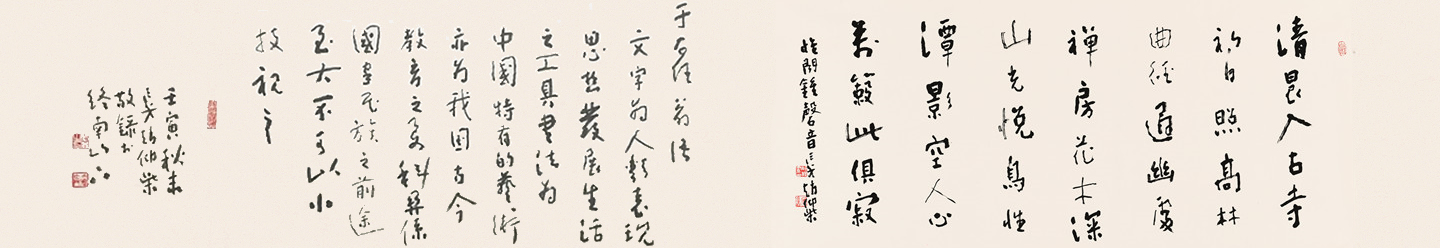 清晨入古寺
初日照高林
曲徑通幽處
禅房花木深
山光悅鳥性
潭影空人心
萬籟此俱寂
惟聞鐘磬音
于右任翁语
文字为人類表现
思想發展生活
之工具書法为
中國特有的藝術
亦为我国古今
教育之要科關係
國家民族之前途
至大不可以小
技視之
壬寅秋末
敬録于
终南山下